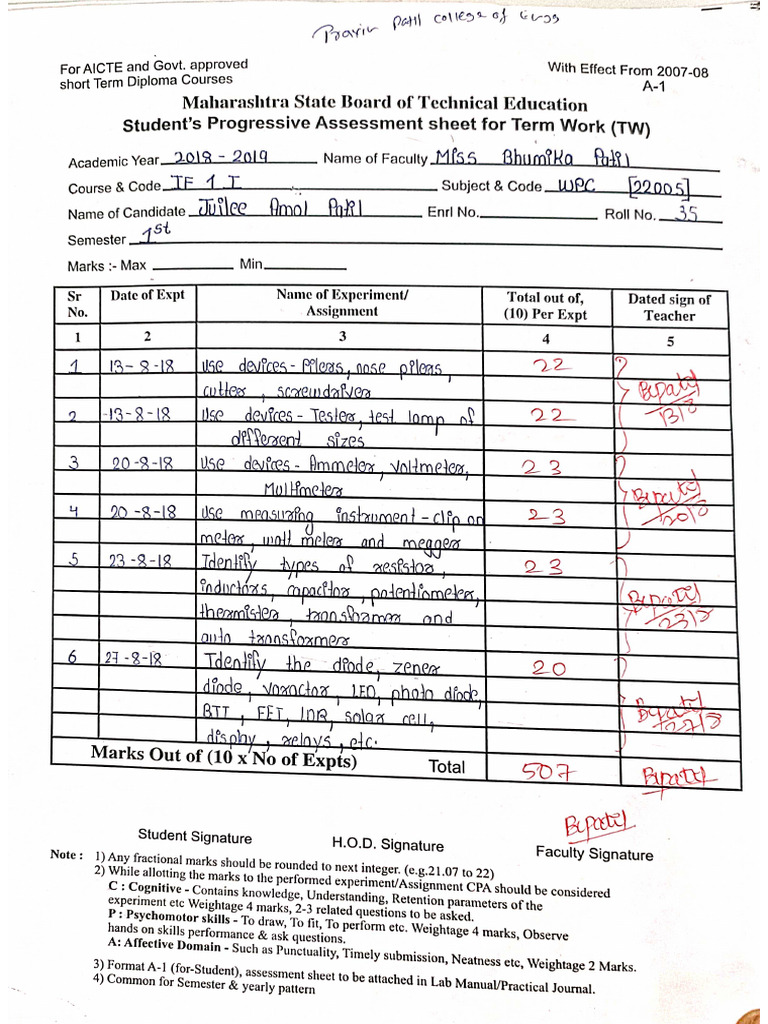 Pravin Patil College of Engg
For AICTE and Govt. approved
short Term Diploma Courses
With Effect From 2007-08
A-1
Maharashtra State Board of Technical Education
Student's Progressive Assessment sheet for Term Work (TW)
Academic Year 2018 - 2019 Name of Faculty Miss Bhumika Patil
Course & Code IF 1 I Subject & Code WPC [22005]
Name of Candidate Juilee Amol Patil Enrl No. Roll No. 35
Semester 1st
Marks :- Max Min
Sr No. Date of Expt Name of Experiment/ Assignment Total out of, (10) Per Expt Dated sign of Teacher
1 2 3 4 5
1 13-8-18 Use devices - Pilers, nose pilers, 22
cutter, screwdriver Bipatil 13/8
2 13-8-18 Use devices - Tester, test lamp of 22
different sizes
3 20-8-18 Use devices - Ammeter, voltmeter, 23
Multimeter Bipatil 20/8
4 20-8-18 Use measuring instrument - clip on 23
meter, watt meter and megger
5 23-8-18 Identify types of resistor, 23
inductors, capacitor, potentiometer, Bipatil
thermister, transformer and 23/8
auto transformers
6 27-8-18 Identify the diode, zener 20
diode, varactor, LED, photo diode, Bipatil
BJT, FET, LDR, solar cell, 27/8
display, relays, etc.
Marks Out of (10 x No of Expts) Total 507 Bipatil
Bipatil
Student Signature H.O.D. Signature Faculty Signature
Note : 1) Any fractional marks should be rounded to next integer. (e.g.21.07 to 22)
2) While allotting the marks to the performed experiment/Assignment CPA should be considered
C : Cognitive - Contains knowledge, Understanding, Retention parameters of the
experiment etc Weightage 4 marks, 2-3 related questions to be asked.
P : Psychomotor skills - To draw, To fit, To perform etc. Weightage 4 marks, Observe
hands on skills performance & ask questions.
A: Affective Domain - Such as Punctuality, Timely submission, Neatness etc, Weightage 2 Marks.
3) Format A-1 (for-Student), assessment sheet to be attached in Lab Manual/Practical Journal.
4) Common for Semester & yearly pattern